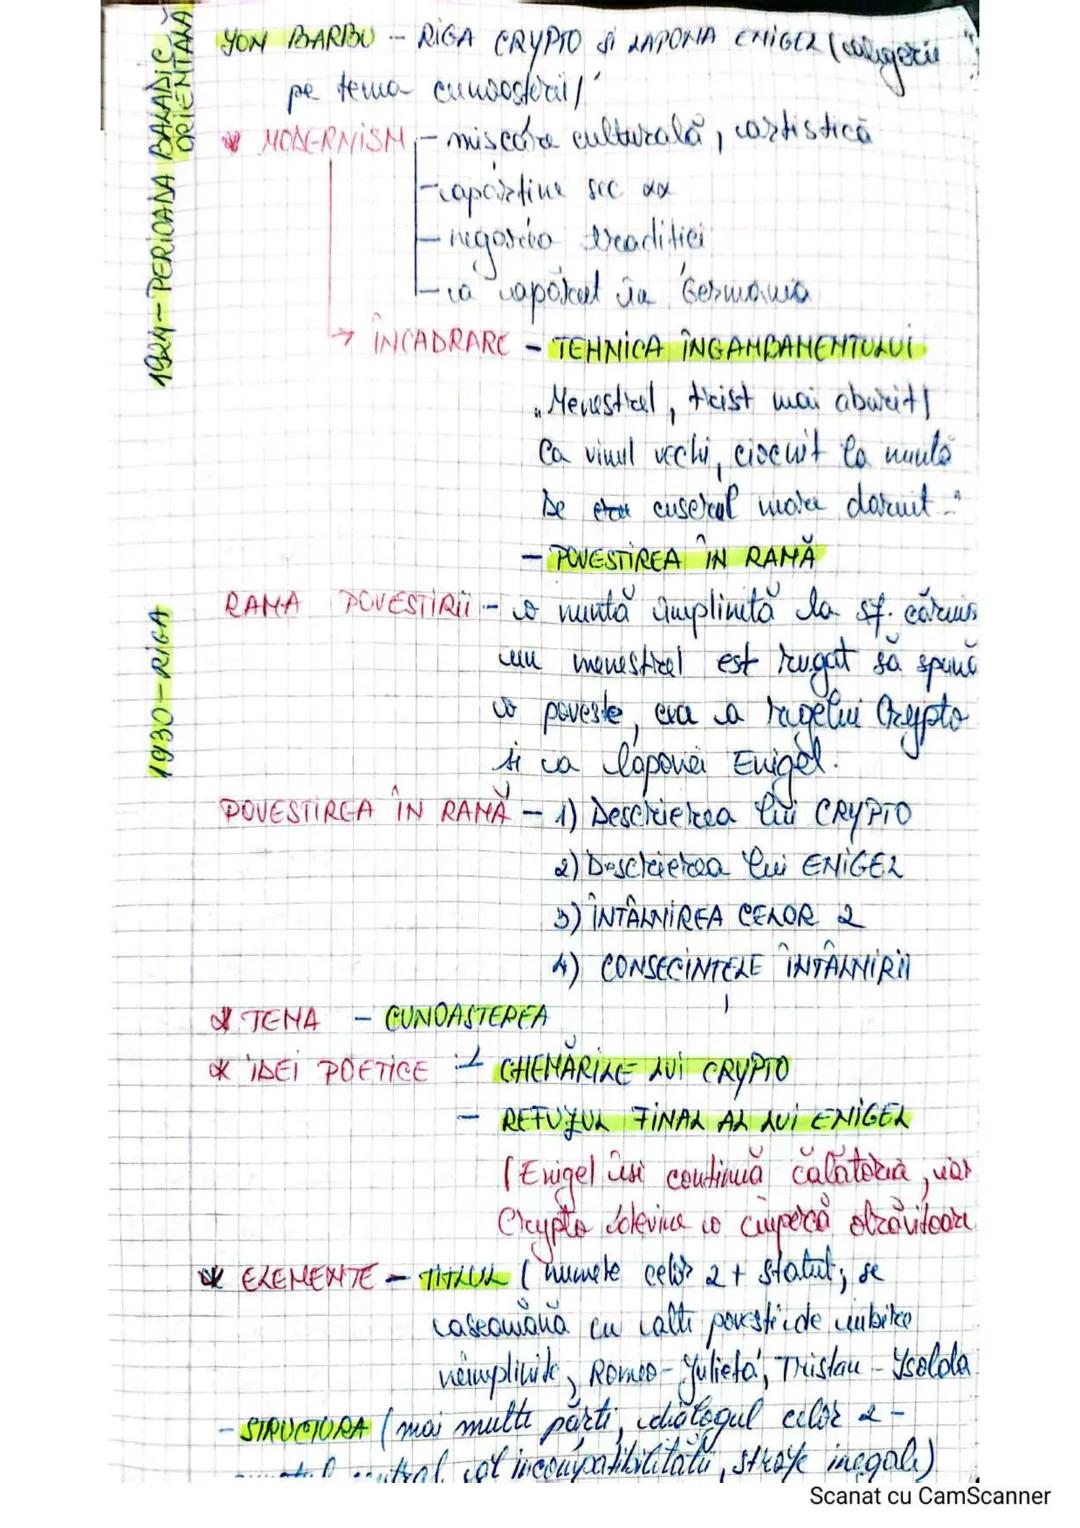 1924 - PERIOADA BALADIC ORIENTALĂ
1930 - RIGA
ION BARBU - RIGA CRYPTO ȘI LAPONA ENIGEL (alegorie
pe tema cunoașterii)
* MODERNISM - mișcare culturală, artistică
- aparține sec XX
- negarea tradiției
- a apărut în Germania
→ ÎNCADRARE - TEHNICA ÎNGAMBAMENTULUI
„Menestrel, trist mai aburit/
Ca vinul vechi, ciocnit la nuntă
De cuscrul mare dăruit."
- POVESTIREA ÎN RAMĂ
RAMA POVESTIRII - o nuntă împlinită la sf. căruia
un menestrel est rugat să spună
o poveste, cea a regelui Crypto
și a laponei Enigel.
POVESTIREA ÎN RAMĂ - 1) Descrierea lui CRYPTO
2) Descrierea lui ENIGEL
3) ÎNTÂLNIREA CELOR 2
4) CONSECINTELE ÎNTÂLNIRII
* TEMA - CUNOAȘTEREA
* IDEI POETICE - CHEMĂRILE LUI CRYPTO
- REFUZUL FINAL AL LUI ENIGEL
(Enigel își continuă călătoria, iar
Crypto devine o ciupercă otrăvitoare
* ELEMENTE - TITLUL (numele celor 2 + statut; se
aseamănă cu alte povești de iubire
neîmplinite, Romeo - Julieta, Tristan - Isolda
- STRUCTURA (mai multe părți, dialogul celor 2 -
central al incompatibilității, strofe inegale)
Scanat cu CamScanner